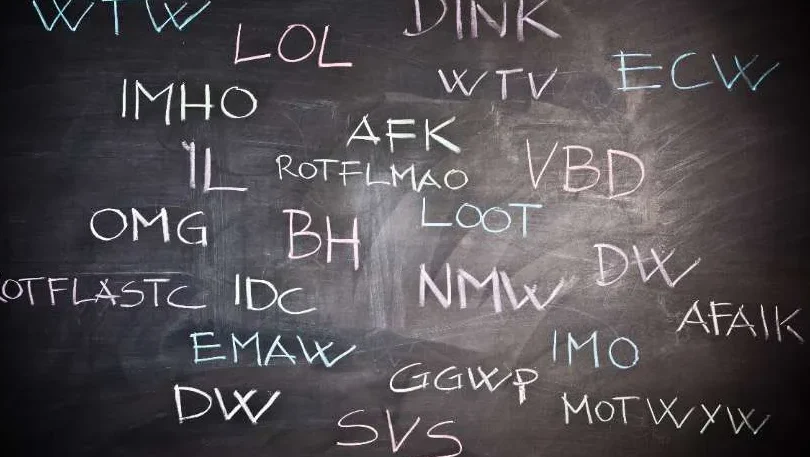 WTW
DINK
LOL
WTV
ECW
IMHO
AFK
IL
ROTFLMAO
VBD
OMG
BH
LOOT
DW
OTFLASTC
IDC
NMW
AFAIK
EMAW
IMO
GGWP
DW
MOTWYW
SVS